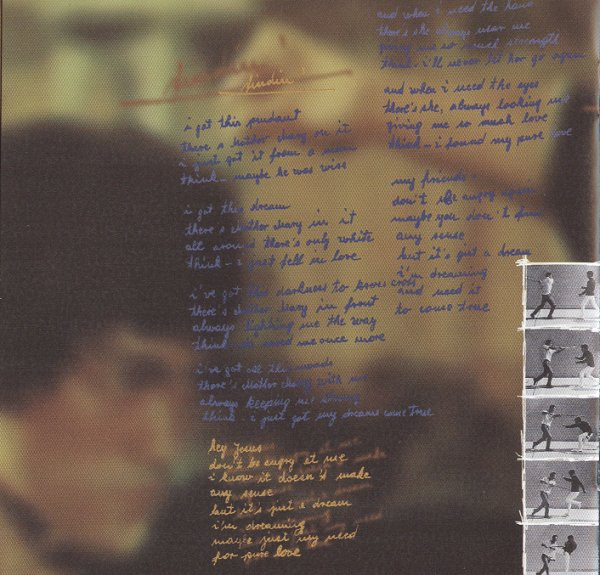 i got this pendant
there s Mother Mary on it
i just got it from a man
think - maybe he was wise
i got this dream
there s Mother Mary in it
all around there's only white
think - i just fell in love
i've got this darkness to come across
there's Mother Mary in front
always lighting me the way
think she saved me once more
i've got all
there's Mother Mary with me
always keeping me strong
think - i just got my dreams come true
hey Jesus
don't be angry at me
i know it doesn't make
any sense
but it's just a dream
i'm dreaming
maybe just my need
for pure love
and when i need the hand
there's she always near me
giving me so much strength
think - i'll never let her go again
and when i need the eyes
there's she, always looking me
giving me so much love
think - i found my pure love
my friends
don't be angry
maybe you don't find
any sense
but it's just a dream
i'm dreaming
and need it
to come true